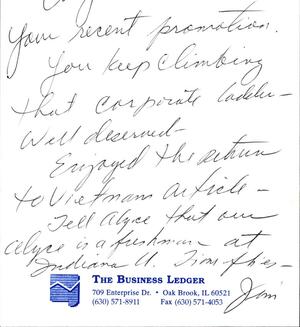 Your recent promotion.
You keep climbing
that corporate ladder -
Well deserved -
Enjoyed the return
to Vietnam article -
Tell Alyce that our
Alyce is a freshman at
Indiana U. Time flies -
Jim
THE BUSINESS LEDGER
709 Enterprise Dr. • Oak Brook, IL 60521
(630) 571-8911 Fax (630) 571-4053